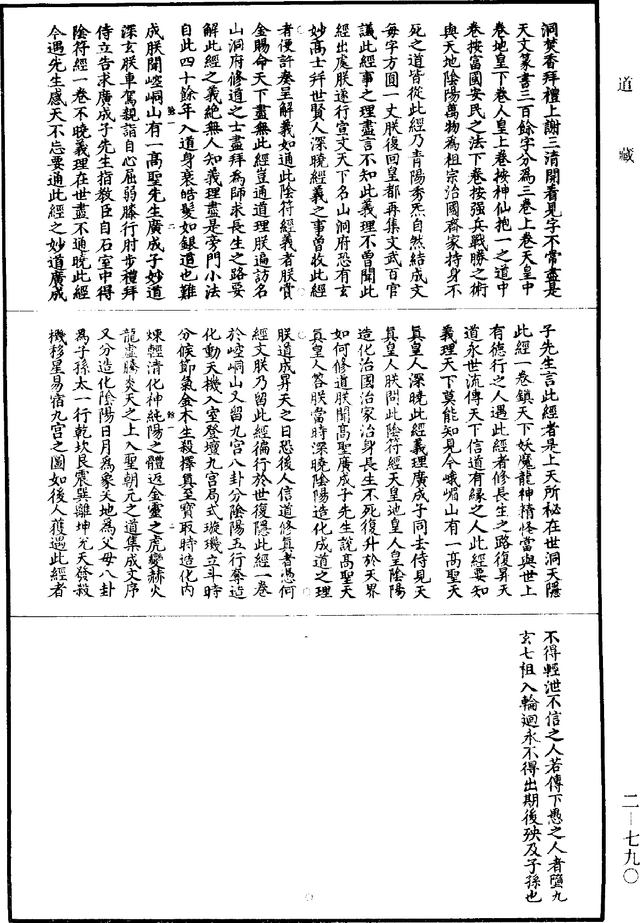 道藏
洞焚香拜禮上謝三清開看見字不常盡是
天文篆書三百餘字分為三卷上卷天皇中
卷地皇下卷人皇上卷按神仙抱一之道中
卷按富國安民之法下卷按强兵戰勝之術
與天地陰陽萬物為祖宗治國齊家持身不
死之道皆從此經乃青陽秀炁自然結成文
每字方圓一丈朕後回皇都再集文武百官
議此經事之理盡言不知此義理不曾聞此
經出處朕遂行宣文天下名山洞府恐有玄
妙高士拜世賢人深曉經義之事曾收此經
者便許奏呈解義如通此陰符經義者朕賞
金賜命天下盡無此經豈通道理朕遍訪名
山洞府修道之士盡拜為師求長生之路要
解此經之義絶無人知義理盡是旁門小法
自此四十餘年入道身衰皓髮如銀道也難
成朕聞崆峒山有一高聖先生廣成子妙道
深玄朕車駕親詣自心屈弱膝行肘步禮拜
侍立告求廣成子先生指教臣自石室中得
陰符經一卷不曉義理在世盡不通曉此經
今遇先生感天不忘要通此經之妙道廣成
子先生言此經者是上天所秘在世洞天隱
此經一卷鎮天下妖魔龍神精怪當與世上
有德行之人遇此經者修長生之路復昇天
道永世流傳天下信道有緣之人此經要知
義理天下莫能知見今峨嵋山有一高聖天
真皇人深曉此經義理廣成子同去侍見天
真皇人朕問此陰符經天皇地皇人皇陰陽
造化治國治家治身長生不死復升於天界
如何修道朕聞高聖廣成子先生說高聖天
真皇人答朕當時深曉陰陽造化成道之理
朕道成昇天之日恐後人信道修真者憑何
經文朕乃留此經徧行於世復隱此經一卷
於崆峒山又留九宮八卦分陰陽五行奪造
化動天機入室登壇九宮局式璇璣立斗時
分候節氣金木生殺擇真至寶取時造化內
煉輕清化神純陽之體返金靈之虎變赫火
龍盡騰炎天之上入聖朝元之道集成文序
又分造化陰陽日月為象天地為父母八卦
為子孫太一行乾坎艮震巽離坤兌天發殺
機移星易宿九宮之圖如後人獲遇此經者
不得輕泄不信之人若傳下愚之人者墮九
玄七祖入輪迴永不得出期後殃及子孫也
二—七九〇